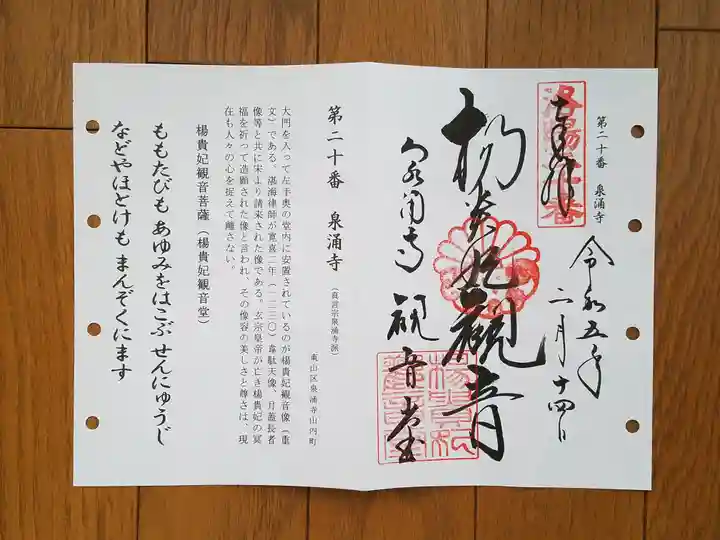 第二十番 泉涌寺
洛陽二十番
奉拝
令和五年
二月十四日
楊貴妃観音
泉涌寺 観音堂
楊貴妃観音堂
第二十番 泉涌寺
(真言宗泉涌寺派)
東山区泉涌寺山内町
大門を入って左手奥の堂内に安置されているのが楊貴妃観音像(重
文)である。湛海律師が寛喜二年(一二三〇)韋駄天像、月蓋長者
像等と共に宋より請来された像である。玄宗皇帝が亡き楊貴妃の冥
福を祈って造顕された像と言われ、その像容の美しさと尊さは、現
在も人々の心を捉えて離さない。
楊貴妃観音菩薩(楊貴妃観音堂)
ももたびも あゆみをはこぶ せんにゅうじ
などやほとけも まんぞくにます